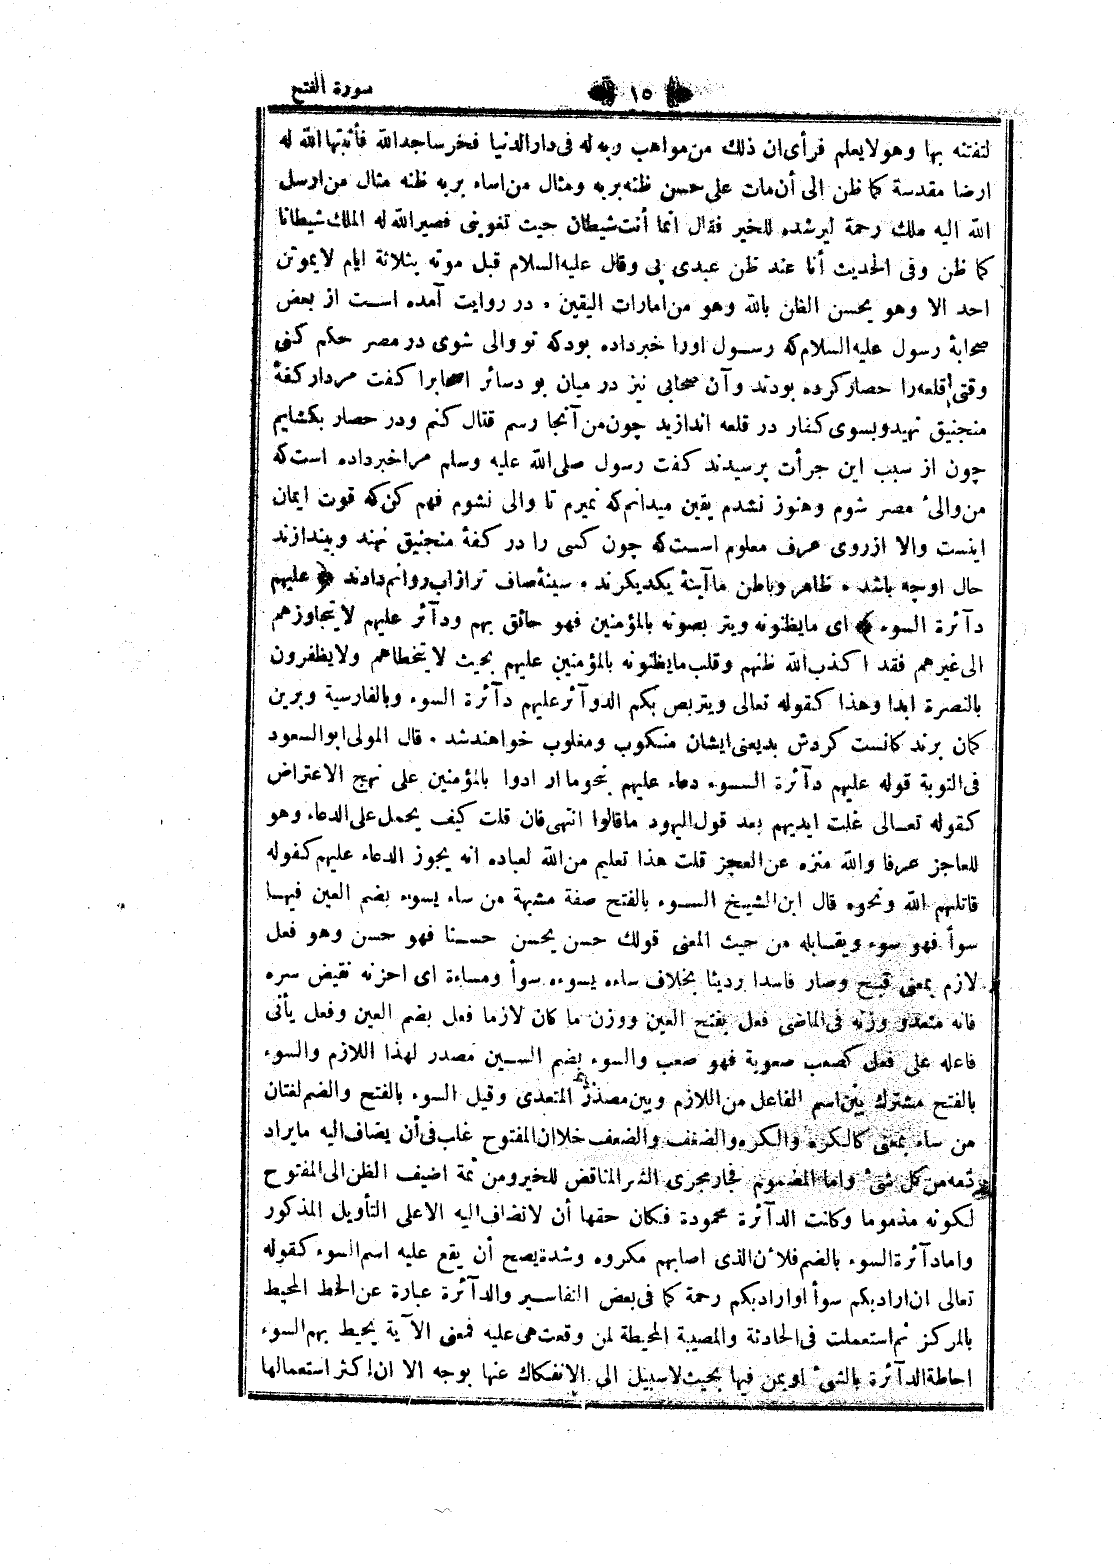 سورة الفتح
﴿ ١٥ ﴾
لتفتنه بها وهو لا يعلم فرأى ان ذلك من مواهب ربه له فى دار الدنيا فخر ساجد الله فأنبتها الله له
ارضا مقدسة كما ظن الى أن مات على حسن ظنه بربه ومثال من اساء بربه ظنه مثال من ارسل
الله اليه ملك رحمة ليرشده للخير فقال انما أنت شيطان جيت تغوينى فصير الله له الملك شيطانا
كما ظن وفى الحديث أنا عند ظن عبدى بى وقال عليه السلام قبل موته بثلاثة ايام لا يموتن
احد الا وهو يحسن الظن بالله وهو من امارات اليقين ٠ در روايت آمده است از بعض
صحابۀ رسول عليه السلام كه رسول اورا خبر داده بود كه تو والى شوى در مصر حكم كنى
وقتى قلعه را حصار كرده بودند وآن صحابى نيز در ميان بود سائر اصحابرا كفت مر دار كفۀ
منجنيق نهيد وبسوى كفار در قلعه اندازيد چون من آنجا رسم قتال كنم ودر حصار بكشايم
چون از سبب اين جرأت پرسيدند كفت رسول صلى الله عليه وسلم مرا خبر داده است كه
من والىٔ مصر شوم وهنوز نشدم يقين ميدانم كه نميرم تا والى نشوم فهم كن كه قوت ايمان
اينست والا ازروى عرف معلوم است كه چون كسى را در كفۀ منجنيق نهند وبيندازند
حال او چه باشد ٠ ظاهر وباطن ما آينۀ يكديكرند ٠ سينۀ صاف تر ازاب روانم دادند ﴿ عليهم
دآئرة السوء ﴾ اى ما يظنونه ويتربصونه بالمؤمنين فهو حائق بهم ودآئر عليهم لا يتجاوزهم
الى غيرهم فقد اكذب الله ظنهم وقلب ما يظنونه بالمؤمنين عليهم بحيث لا يتخطاهم ولا يظفرون
بالنصرة ابدا وهذا كقوله تعالى ويتربص بكم الدوآئر عليهم دآئرة السوء وبالفارسية وبرين
كمان برند كانست كردش بد يعنى ايشان منكوب ومغلوب خواهند شد ٠ قال المولى ابو السعود
فى التوبة قوله عليهم دآئرة السوء دعاء عليهم بنحو ما ارادوا بالمؤمنين على نهج الاعتراض
كقوله تعالى غلت ايديهم بعد قول اليهود ما قالوا انتهى فان قلت كيف يحمل على الدعاء وهو
للعاجز عرفا والله منزه عن العجز قلت هذا تعليم من الله لعباده انه يجوز الدعاء عليهم كقوله
قاتلهم الله ونحوه قال ابن الشيخ السوء بالفتح صفة مشبهة من ساء يسوء بضم العين فيهما
سوأ فهو سوء ويقابله من حيث المعنى قولك حسن يحسن حسنا فهو حسن وهو فعل
لازم بمعنى قبح وصار فاسدا رديئا بخلاف ساءه يسوءه سوأ ومساءة اى احزنه نقيض سره
فانه متعد ووزنه فى الماضى فعل بفتح العين ووزن ما كان لازما فعل بضم العين وفعل يأتى
فاعله على فعل كصعب صعوبة فهو صعب والسوء بضم السين مصدر لهذا اللازم والسوء
بالفتح مشترك بين اسم الفاعل من اللازم وبين مصدر المتعدى وقيل السوء بالفتح والضم لغتان
من ساء بمعنى كالكره والكره والضعف والضعف خلا ان المفتوح غلب فى أن يضاف اليه ما يراد
ذمه من كل شئ واما المضموم فجار مجرى الشر المناقض للخير ومن ثمة اضيف الظن الى المفتوح
لكونه مذموما وكانت الدآئرة محمودة فكان حقها أن لا تضاف اليه الا على التأويل المذكور
واما دآئرة السوء بالضم فلا ٔن الذى اصابهم مكروه وشدة يصح أن يقع عليه اسم السوء كقوله
تعالى ان اراد بكم سوأ او اراد بكم رحمة كما فى بعض التفاسير والدآئرة عبارة عن الخط المحيط
بالمركز ثم استعملت فى الحادثة والمصيبة المحيطة لمن وقعت هى عليه فمعنى الآية يحيط بهم السوء
احاطة الدآئرة بالشئ او بمن فيها بحيث لا سبيل الى الانفكاك عنها بوجه الا ان اكثر استعمالها